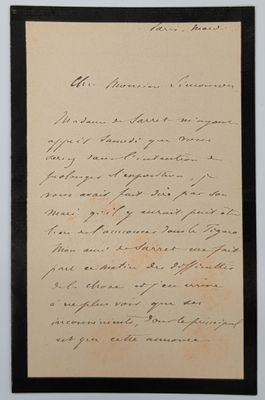 Paris, Mardi
Cher Monsieur Simonson
Madame de Sarret m'ayant
appris Samedi que vous
seriez dans l'intention de
prolonger l'exposition, je
vous avais fait dire par son
mari qu'il y aurait peut être
lieu de l'annoncer dans le Figaro
Mon ami de Sarret me fait
part ce matin des difficultés
de la chose et j'en arrive
à ne plus voir que ses
inconvénients, dont le principal
est que cette annonce